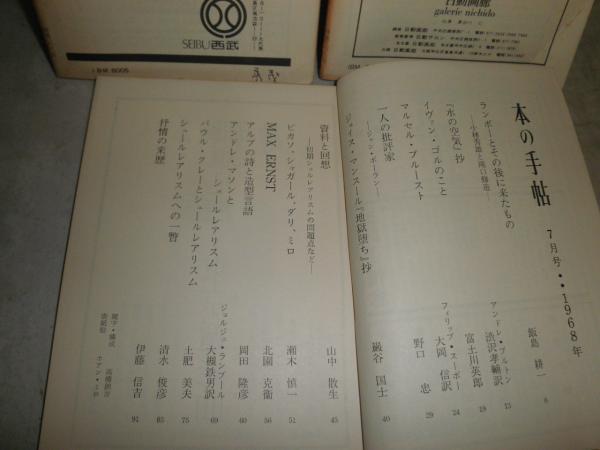 SEIBU西武
IBM 6005
日動画廊
galerie nichido
本の手帖
7月号・・1968年
ランボーとその後に来たもの
―小林秀雄と滝口修造―
飯島 耕一
6
『水の空気』抄
アンドレ・ブルトン
渋沢孝輔訳
15
イヴァン・ゴルのこと
富士川英郎
19
マルセル・プルースト
フィリップ・スーポー
大岡 信訳
24
一人の批評家
―ジャン・ポーラン―
野口 忠
29
ジョイス・マンスール『地獄堕ち』抄
巌谷 国士
40
資料と回想
―初期シュルレアリスムの問題点など―
山中 散生
45
ピカソ、シャガール、ダリ、ミロ
瀬木 慎一
51
MAX ERNST
北園 克衛
56
アルプの詩と造型言語
岡田 隆彦
60
アンドレ・マソンと
シュールレアリスム
ジョルジュ・ランブール
大槻鉄男訳
69
パウル・クレーとシュールレアリスム
土肥 美夫
75
シュールレアリスムへの一瞥
清水 俊彦
85
抒情の来歴
伊藤 信吉
91